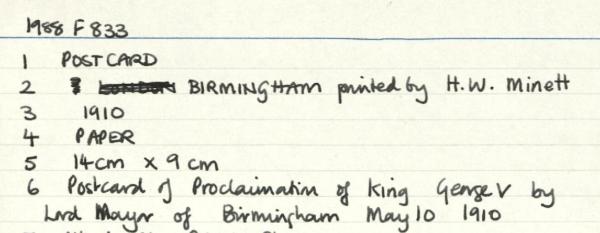 1988 F 833
1 POSTCARD
2 BIRMINGHAM printed by H.W. Minett
3 1910
4 PAPER
5 14cm x 9cm
6 Postcard of Proclaimation of King George V by
Lord Mayor of Birmingham May 10 1910